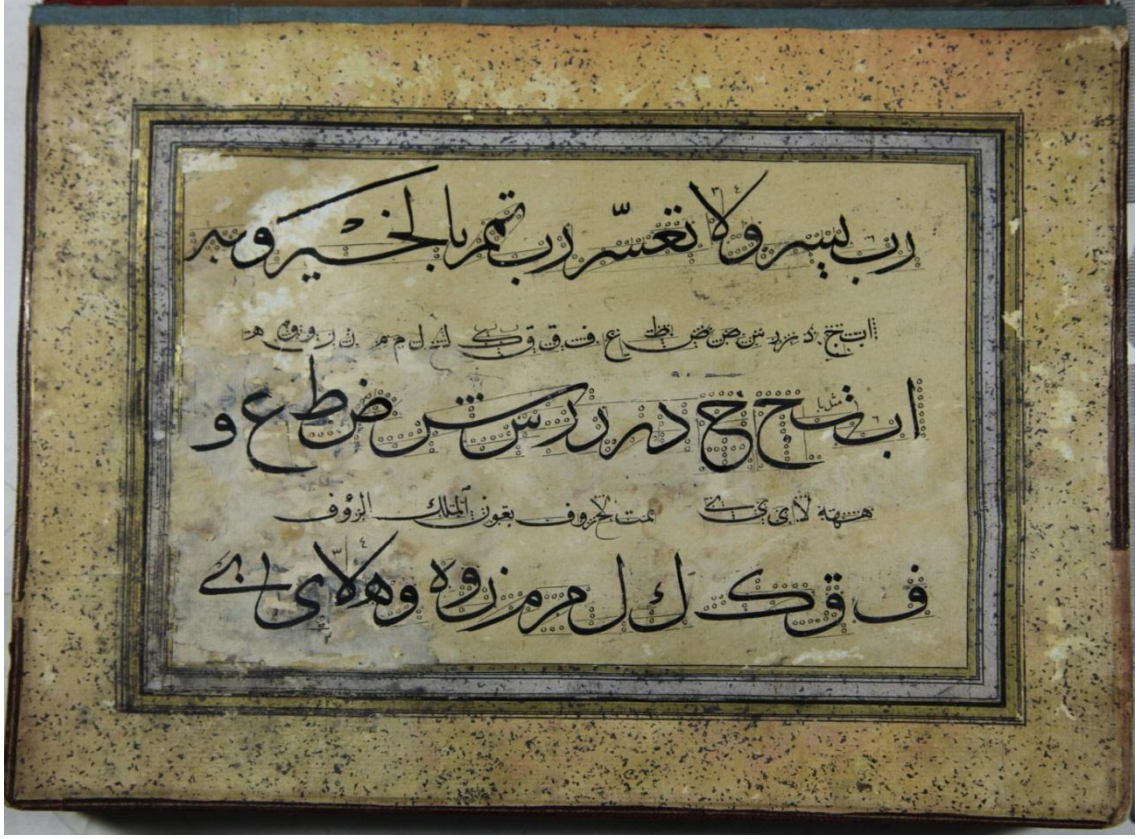 رب يسر ولا تعسّر رب تمم بالخير وبه
ا ب ج د ر س ص ط ع ف ق ك ل م ن و ه
ا ب ث ح ج د ر ز ر س ش ض ط ع و
ههه لا ى ي تمت الحروف بعون الملك الرؤف
ف ق ك ك ل م م ن و ه و ه لا ى ے